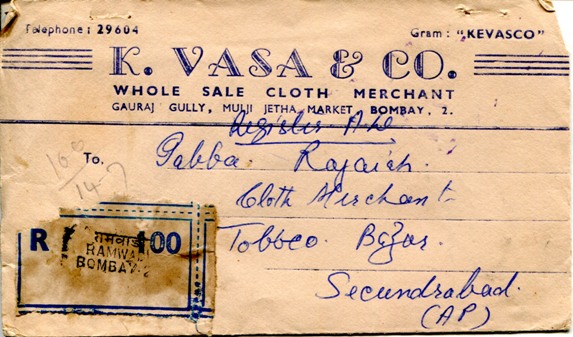 Telephone: 29604
Gram: "KEVASCO"
K. VASA & CO.
WHOLE SALE CLOTH MERCHANT
GAURAJ GULLY, MULJI JETHA MARKET, BOMBAY, 2.
Register A D
To,
Gabba Rajaiah.
Cloth Merchant
Tobbco. Bazar.
Secundrabad.
(AP)
R 00
रामवाडी
RAMWA
BOMBAY-2